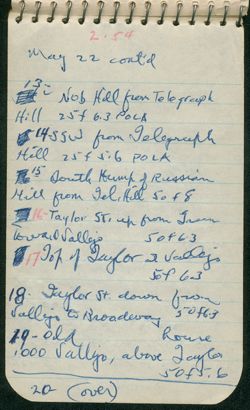 2.54
May 22 cont'd
13- Nob Hill from Telegraph
Hill 25f 6.3 POLA
14 SSW from Telegraph
Hill 25f 5.6 POLA
15 South Hump of Russian
Hill from Tel. Hill 50f8
16- Taylor St. up from
toward Vallejo 50f6.3
17 Top of Taylor & Vallejo
50f6.3
18- Taylor St. down from
Vallejo to Broadway 50f6.3
19- old house
1000 Vallejo, above Taylor
50f5.6
20 (over)